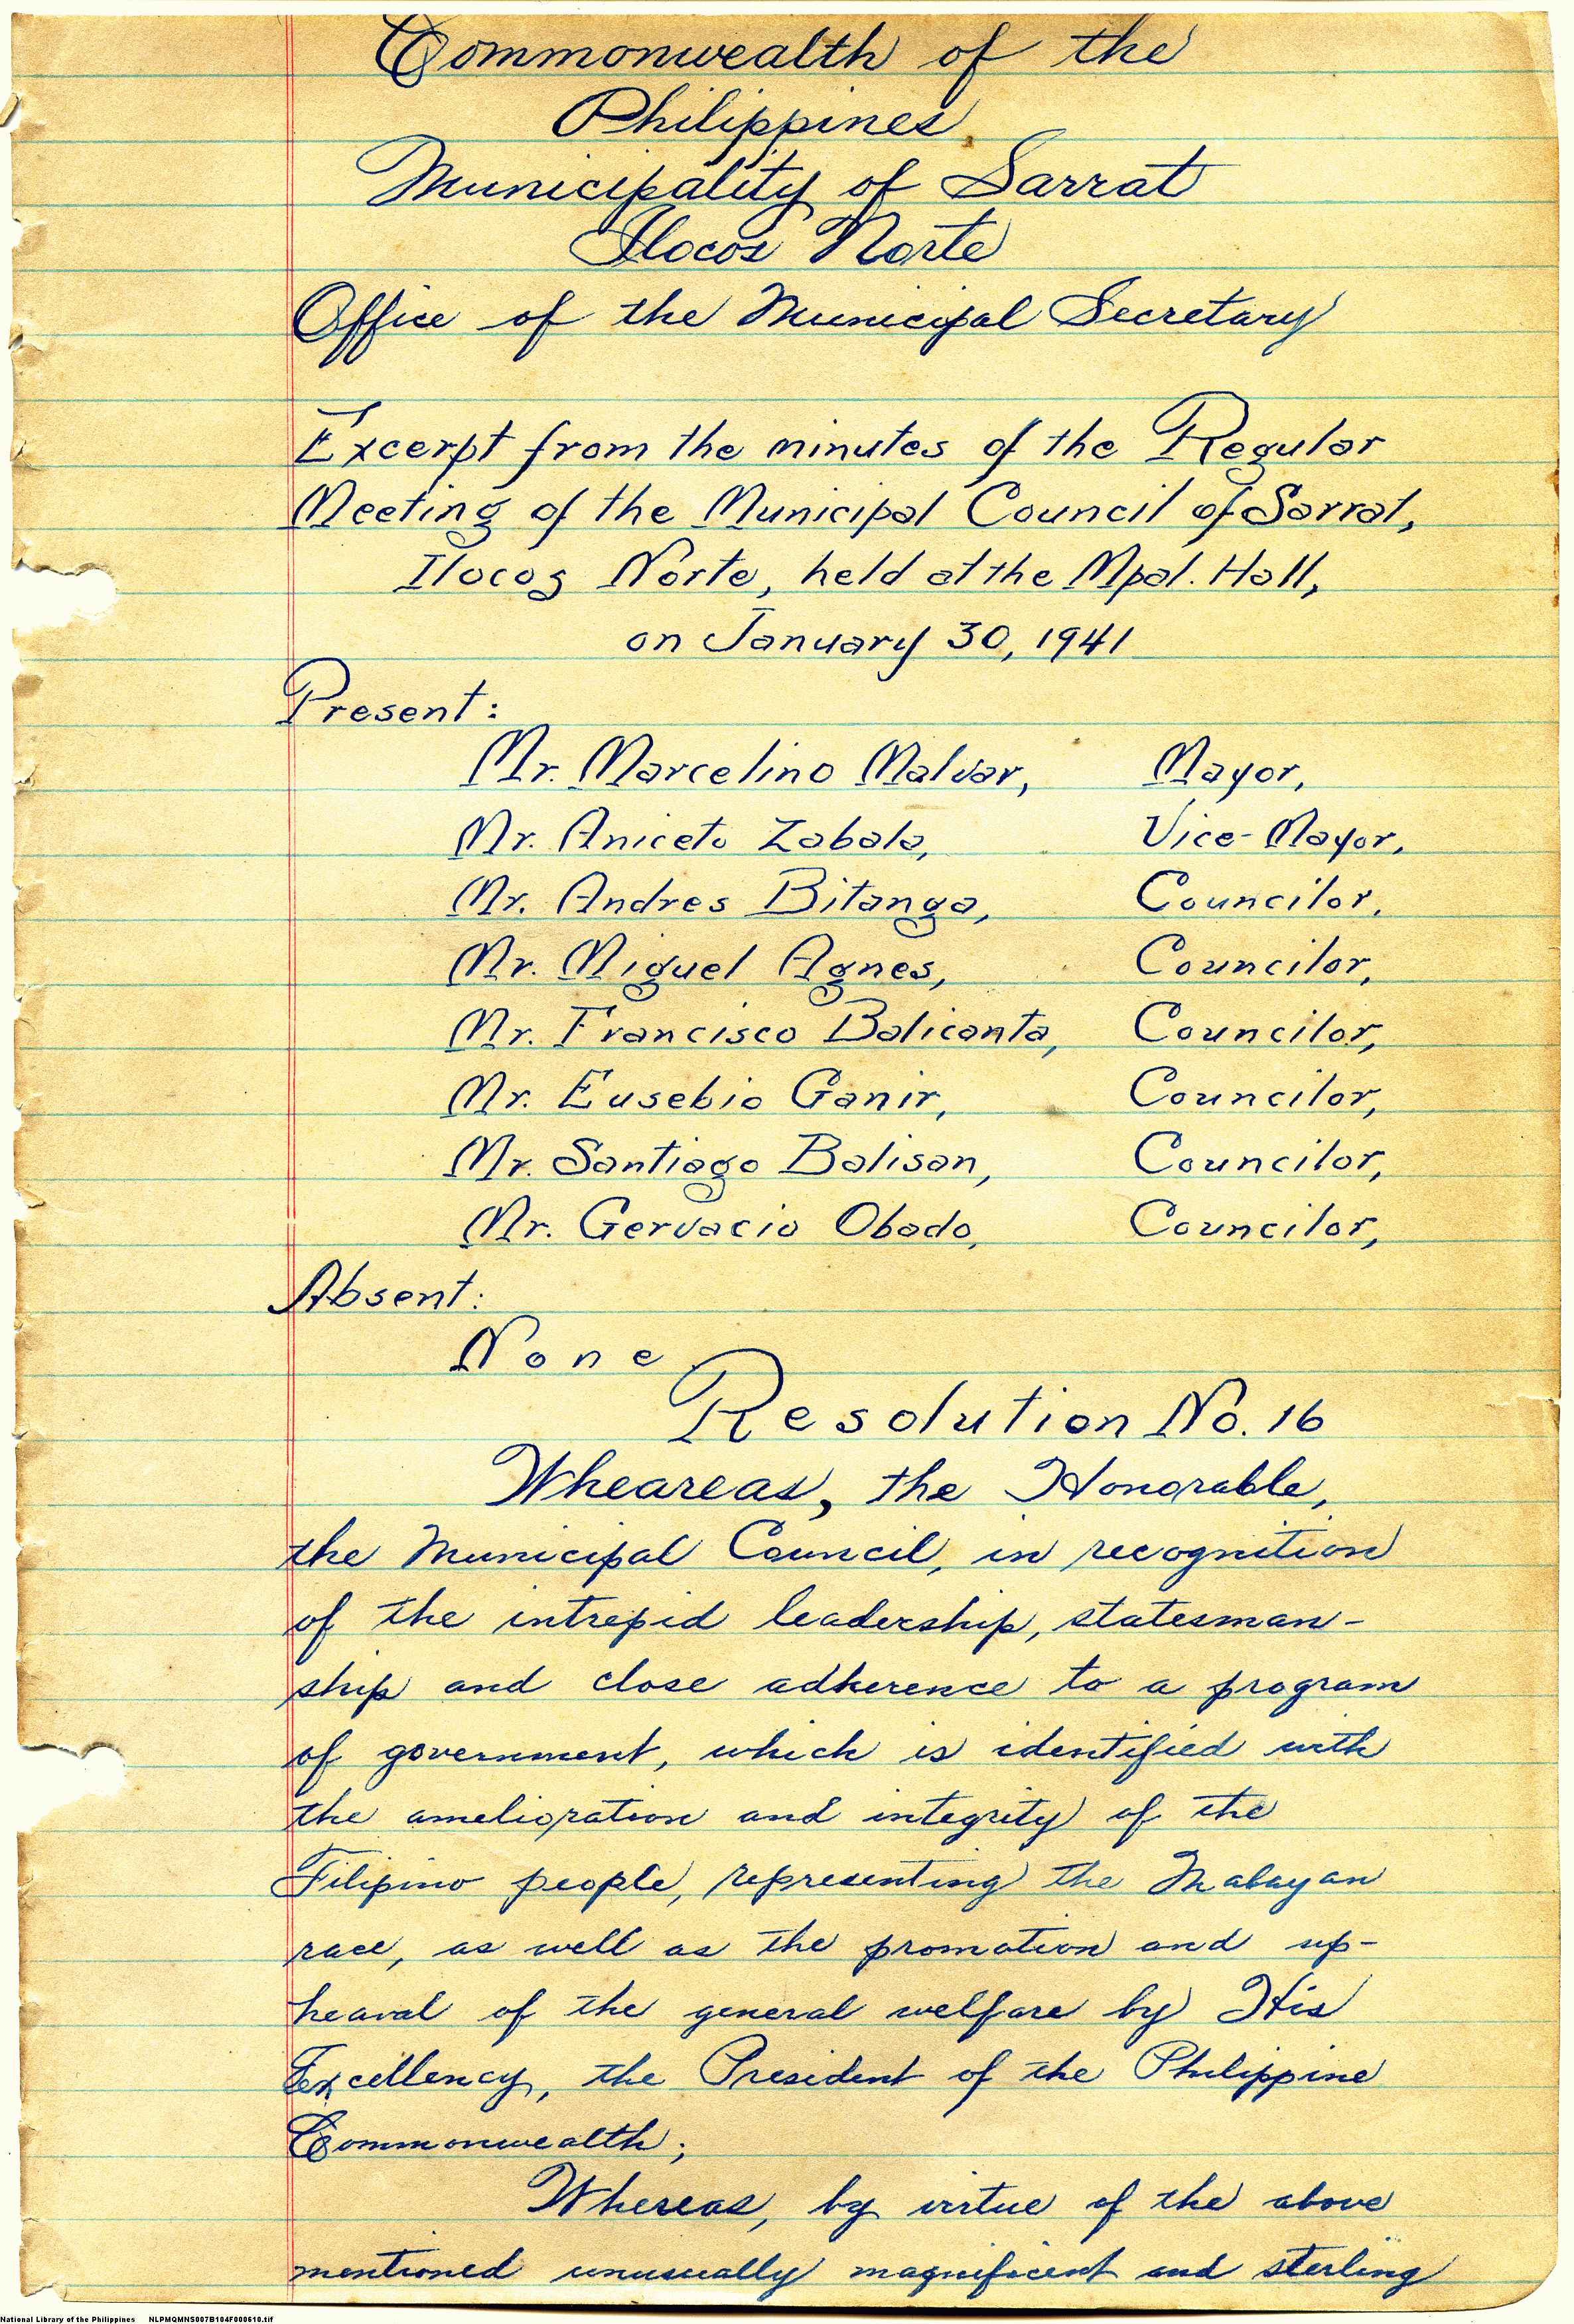 Commonwealth of the
Philippines
Municipality of Sarrat
Ilocos Norte
Office of the Municipal Secretary
Excerpt from the minutes of the Regular
Meeting of the Municipal Council of Sarrat,
Ilocos Norte, held at the Mpal. Hall,
on January 30, 1941
Present:
Mr. Marcelino Malvar, Mayor,
Mr. Aniceto Zabala, Vice-Mayor,
Mr. Andres Bitanga, Councilor,
Mr. Miguel Agnes, Councilor,
Mr. Francisco Balicanta, Councilor,
Mr. Eusebio Ganir, Councilor,
Mr. Santiago Balisan, Councilor,
Mr. Gervacio Obado, Councilor,
Absent:
None
Resolution No. 16
Wheareas, the Honorable,
the Municipal Council, in recognition
of the intrepid leadership, statesman-
ship and close adherence to a program
of government, which is identified with
the amelioration and integrity of the
Filipino people, representing the Malayan
race, as well as the promotion and up-
heaval of the general welfare by His
Excellency, the President of the Philippine
Commonwealth;
Whereas, by virtue of the above
mentioned unusually magnificent and sterling
National Library of the Philippines NLPMQMNS007B104F000610.tif